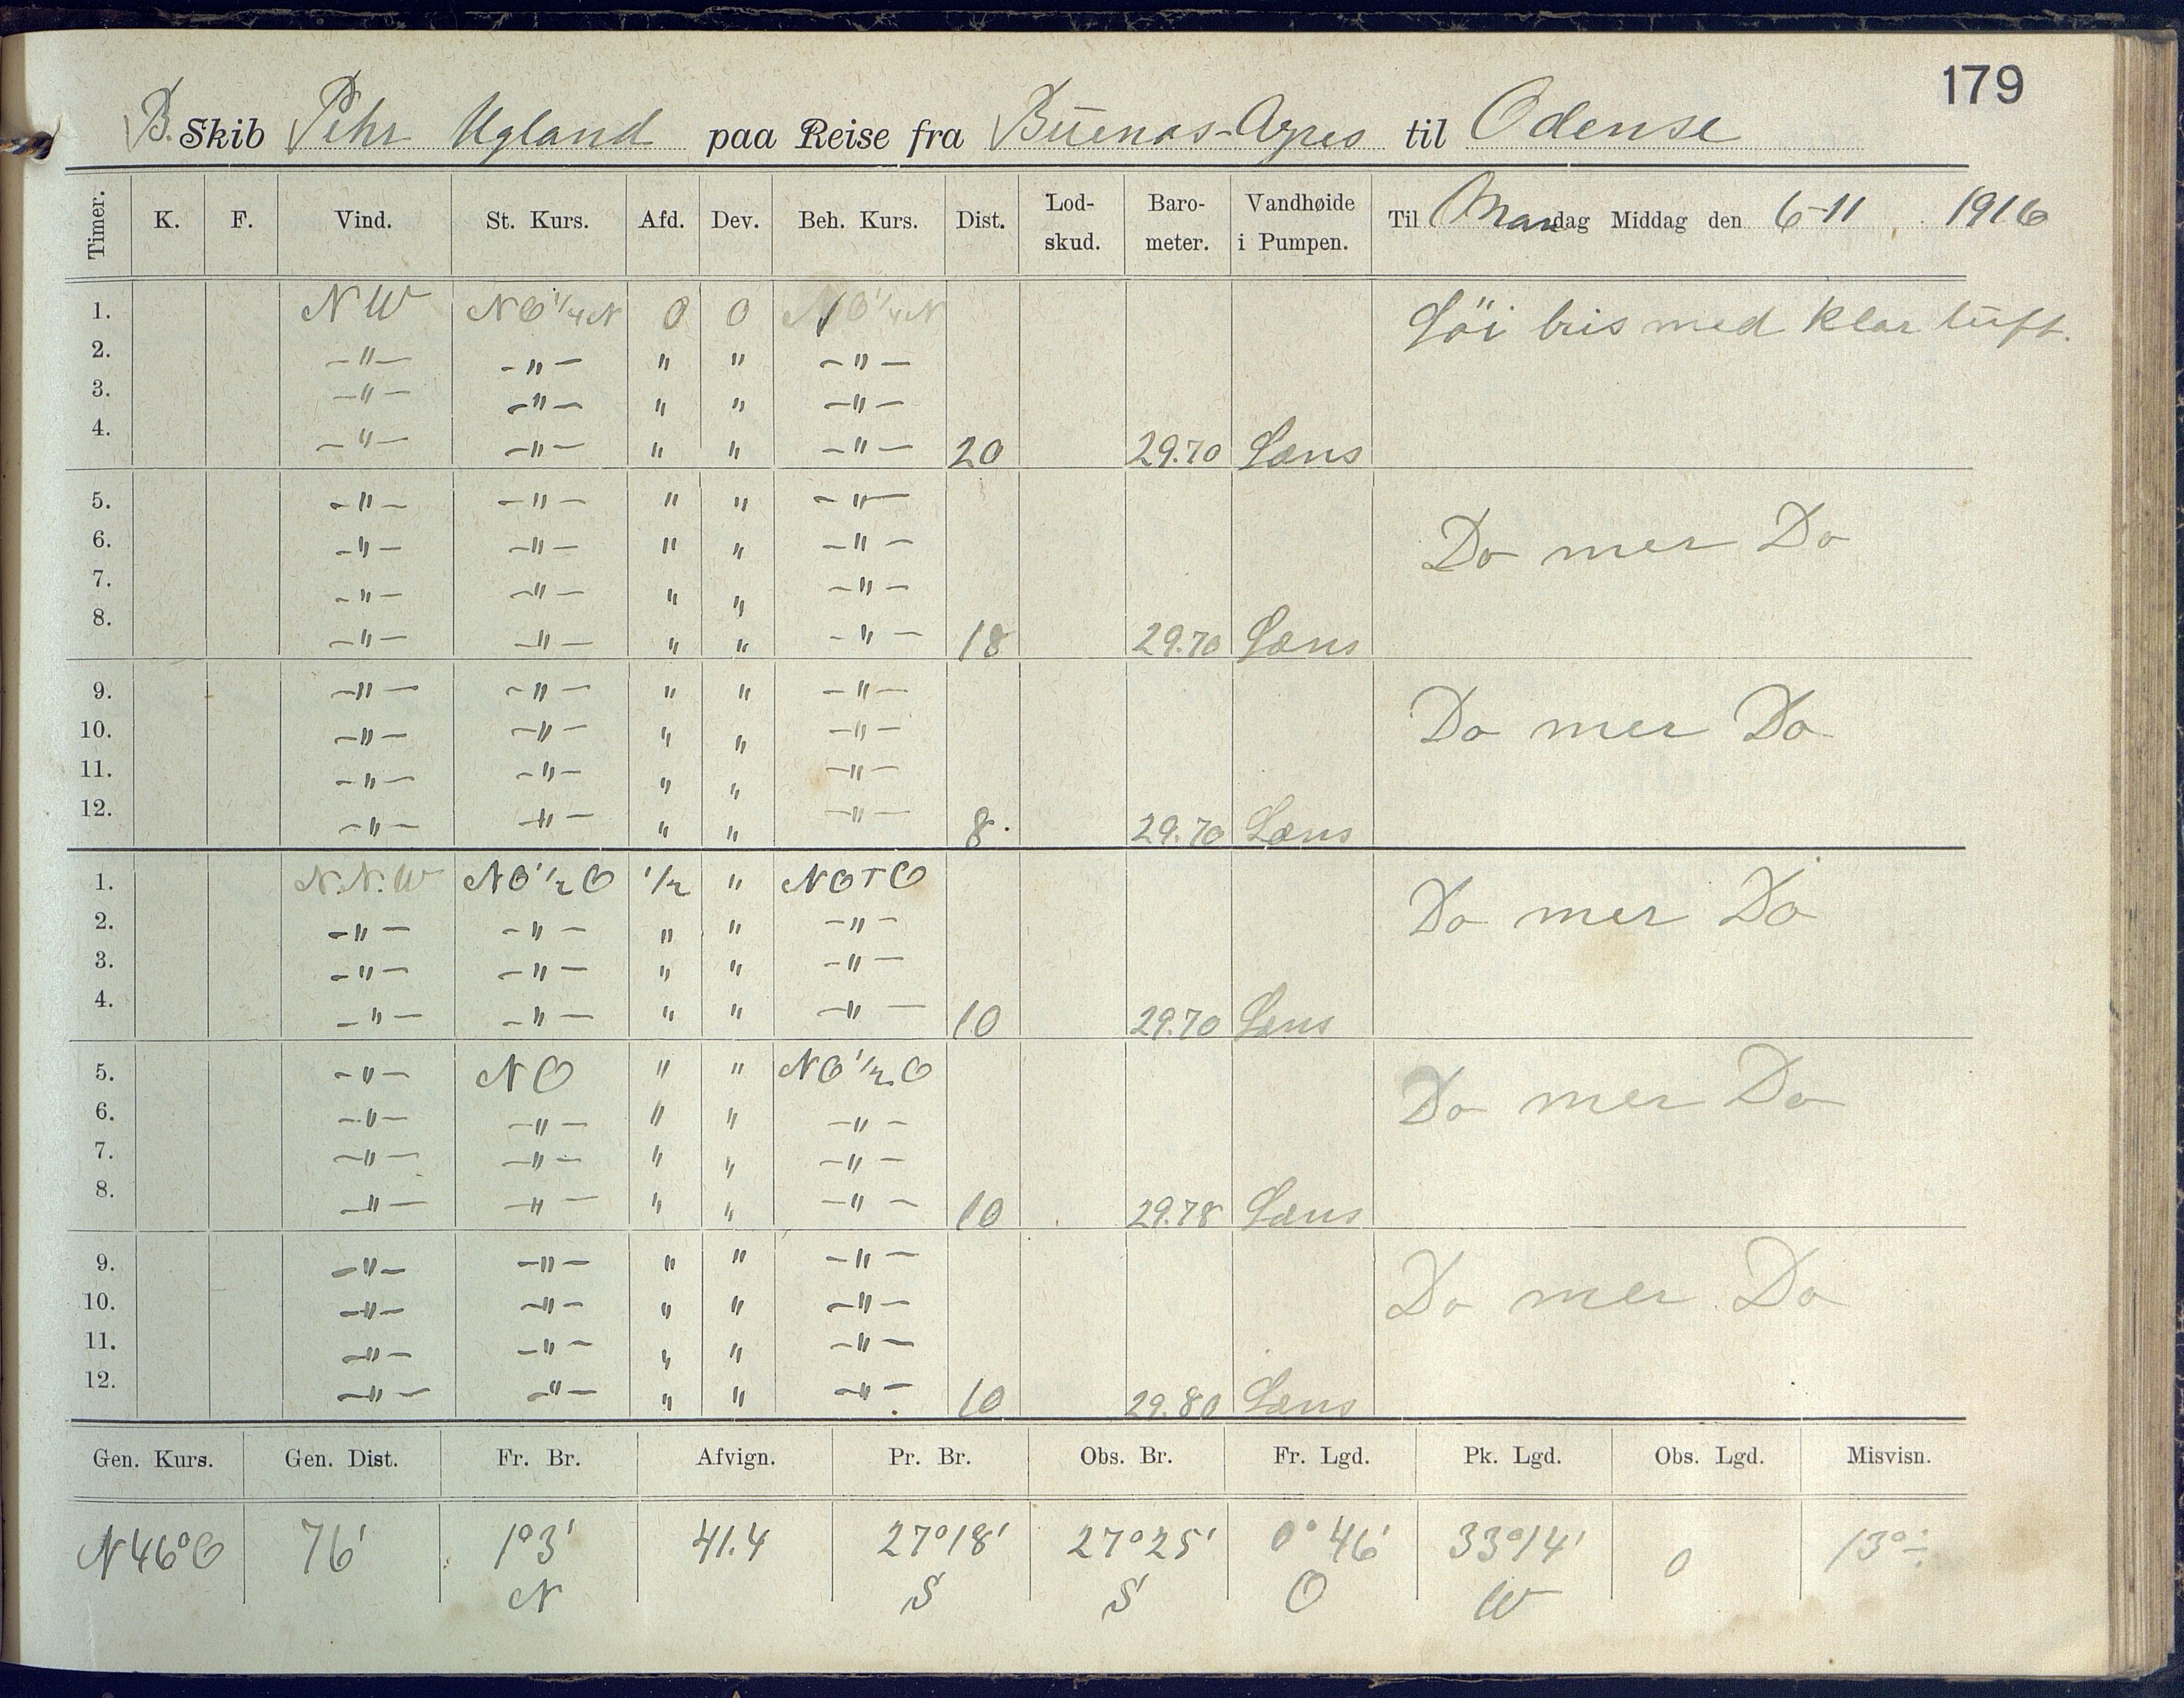 179
B. Skib Pehr Ugland paa Reise fra Buenos-Ayres til Odense
Timer. K. F. Vind. St. Kurs. Afd. Dev. Beh. Kurs. Dist. Lod-skud. Baro-meter. Vandhøide i Pumpen. Til Mandag Middag den 6-11 1916
1. NW NO 1/4 N 0 0 NO 1/4 N Löi bris med klar luft.
2. -"- -"- " " -"-
3. -"- -"- " " -"-
4. -"- -"- " " -"- 20 29.70 Læns
5. -"- -"- " " -"-
6. -"- -"- " " -"- Do mer Do
7. -"- -"- " " -"-
8. -"- -"- " " -"- 18 29.70 Læns
9. -"- -"- " " -"-
10. -"- -"- " " -"- Do mer Do
11. -"- -"- " " -"-
12. -"- -"- " " -"- 8. 29.70 Læns
1. N.N.W NO 1/2 O 1/2 " NOTO
2. -"- -"- " " -"- Do mer Do
3. -"- -"- " " -"-
4. -"- -"- " " -"- 10 29.70 Læns
5. -"- NO " " NO 1/2 O
6. -"- -"- " " -"- Do mer Do
7. -"- -"- " " -"-
8. -"- -"- " " -"- 10 29.78 Læns
9. -"- -"- " " -"-
10. -"- -"- " " -"- Do mer Do
11. -"- -"- " " -"-
12. -"- -"- " " -"- 10 29.80 Læns
Gen. Kurs. Gen. Dist. Fr. Br. Afvign. Pr. Br. Obs. Br. Fr. Lgd. Pk. Lgd. Obs. Lgd. Misvisn.
N 46° O 76' 1°3' 41.4 27°18' 27°25' 0°46' 33°14' 0 13° ÷
N S S O W